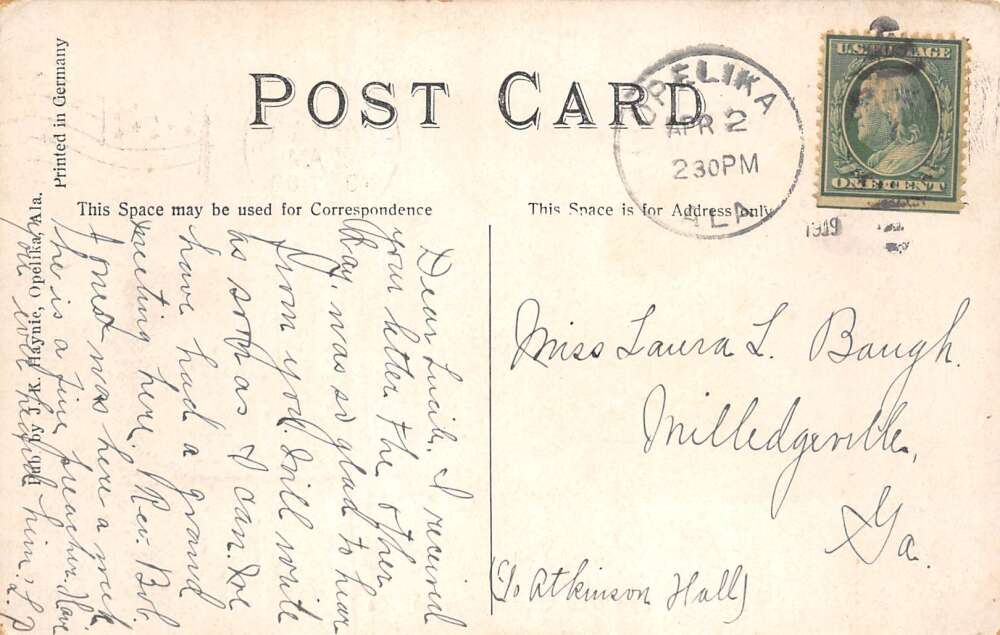 POST CARD
OPELIKA
APR 2
2 30 PM
ALA
1919
U.S. POSTAGE
ONE CENT
This Space may be used for Correspondence
This Space is for Address only
Printed in Germany
Pub. by J. K. Haynie, Opelika, Ala.
Dear Lucile, I received
your letter the other
day, was so glad to hear
from you. Will write
as soon as I can. We
have had a grand
meeting here, Rev. Bob
Jones was here a week
he is a fine preacher. Have
you ever heard him. L.P
Miss Laura L. Baugh.
Milledgeville,
Ga.
(c/o Atkinson Hall)